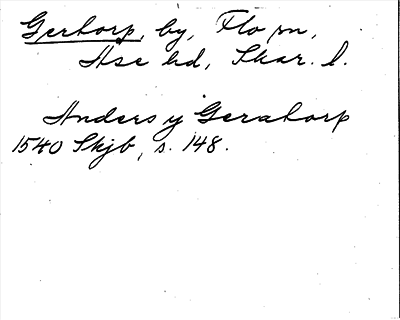 Gertorp, by, Flo sn,
Åse hd, Skar. l.
Anders y Geratorp
1540 Skjb, s. 148.